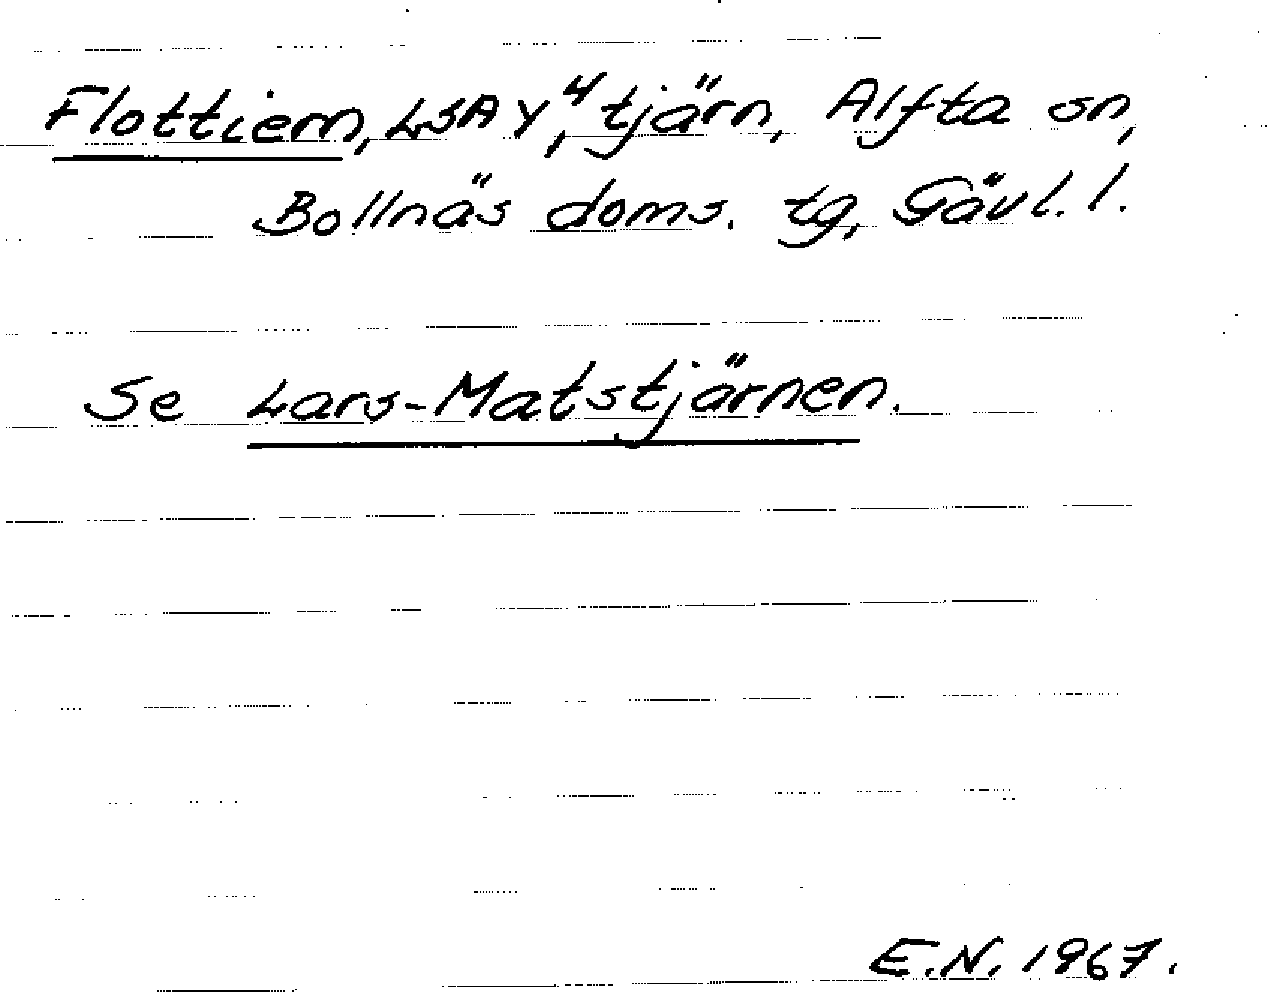 Flottiern, LSA Y⁴, tjärn, Alfta sn,
Bollnäs doms. tg, Gävl. l.
Se Lars-Matstjärnen.
E.N. 1967.